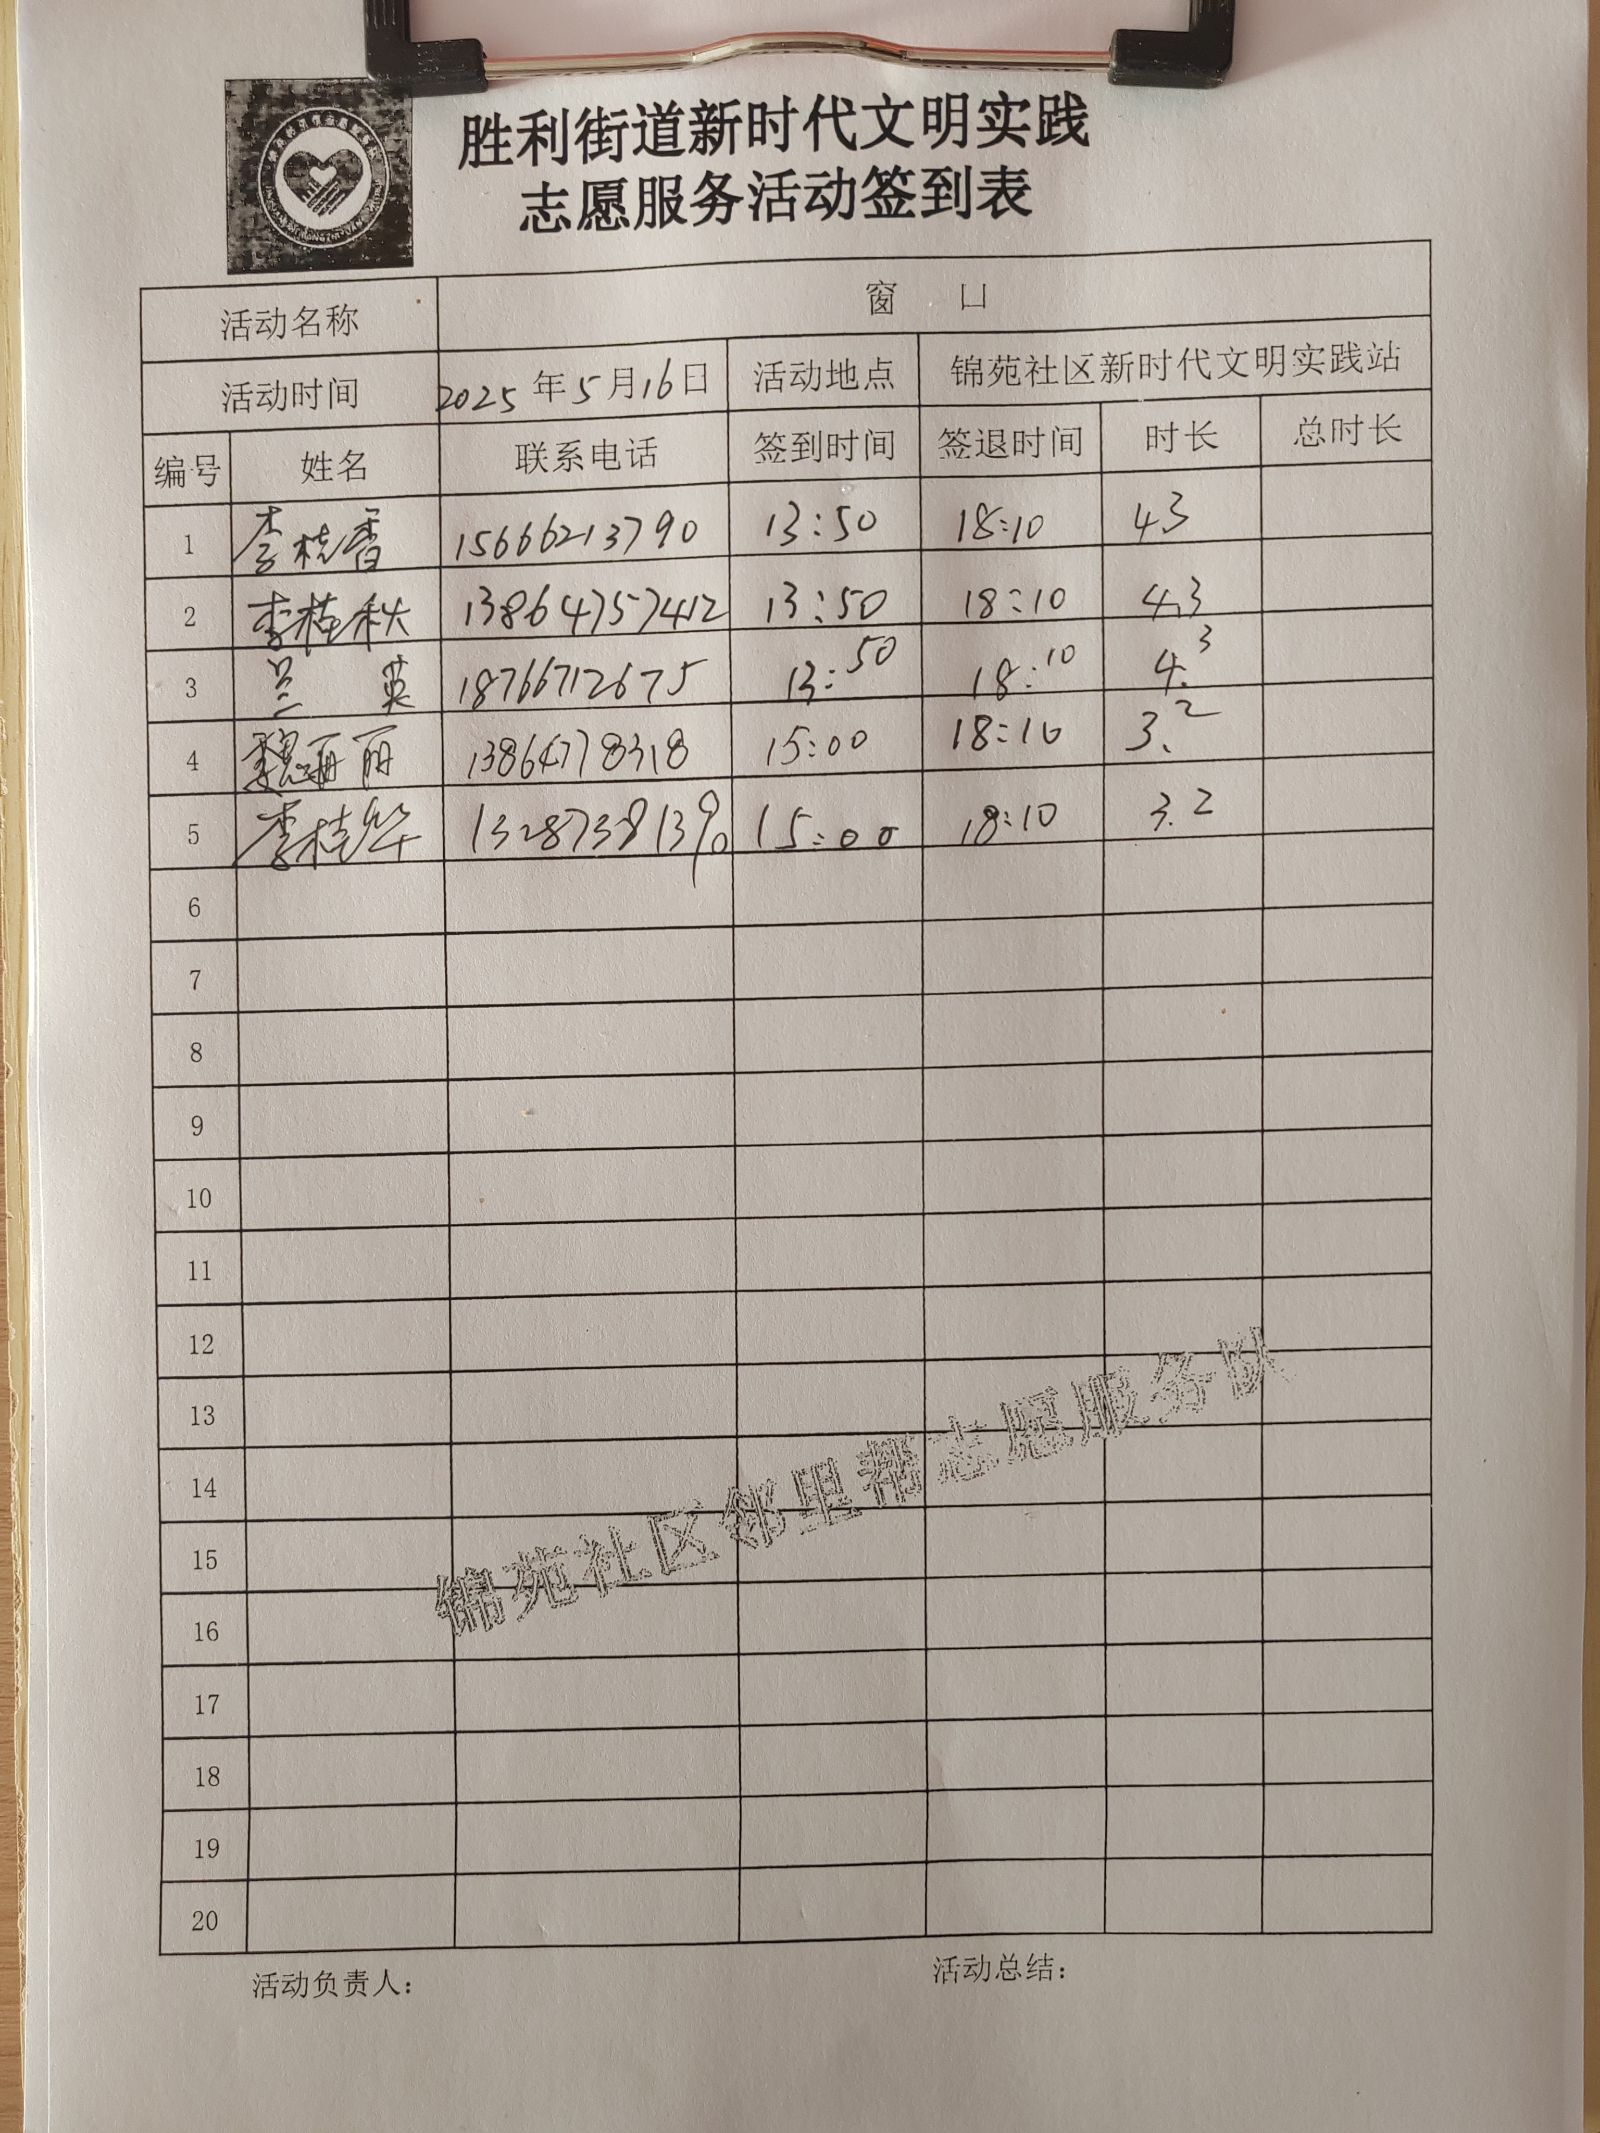 胜利街道新时代文明实践
志愿服务活动签到表
活动名称 窗 口
活动时间 2025年5月16日 活动地点 锦苑社区新时代文明实践站
编号 姓名 联系电话 签到时间 签退时间 时长 总时长
1 李桂香 15666213790 13:50 18:10 4.3
2 李桂秋 13864757412 13:50 18:10 4.3
3 兰 英 18766712675 13:50 18:10 4.3
4 魏丽丽 13864778318 15:00 18:10 3.2
5 李桂华 13287381390 15:00 18:10 3.2
6
7
8
9
10
11
12
13
14
15
16
17
18
19
20
锦苑社区邻里帮志愿服务队
活动负责人： 活动总结：